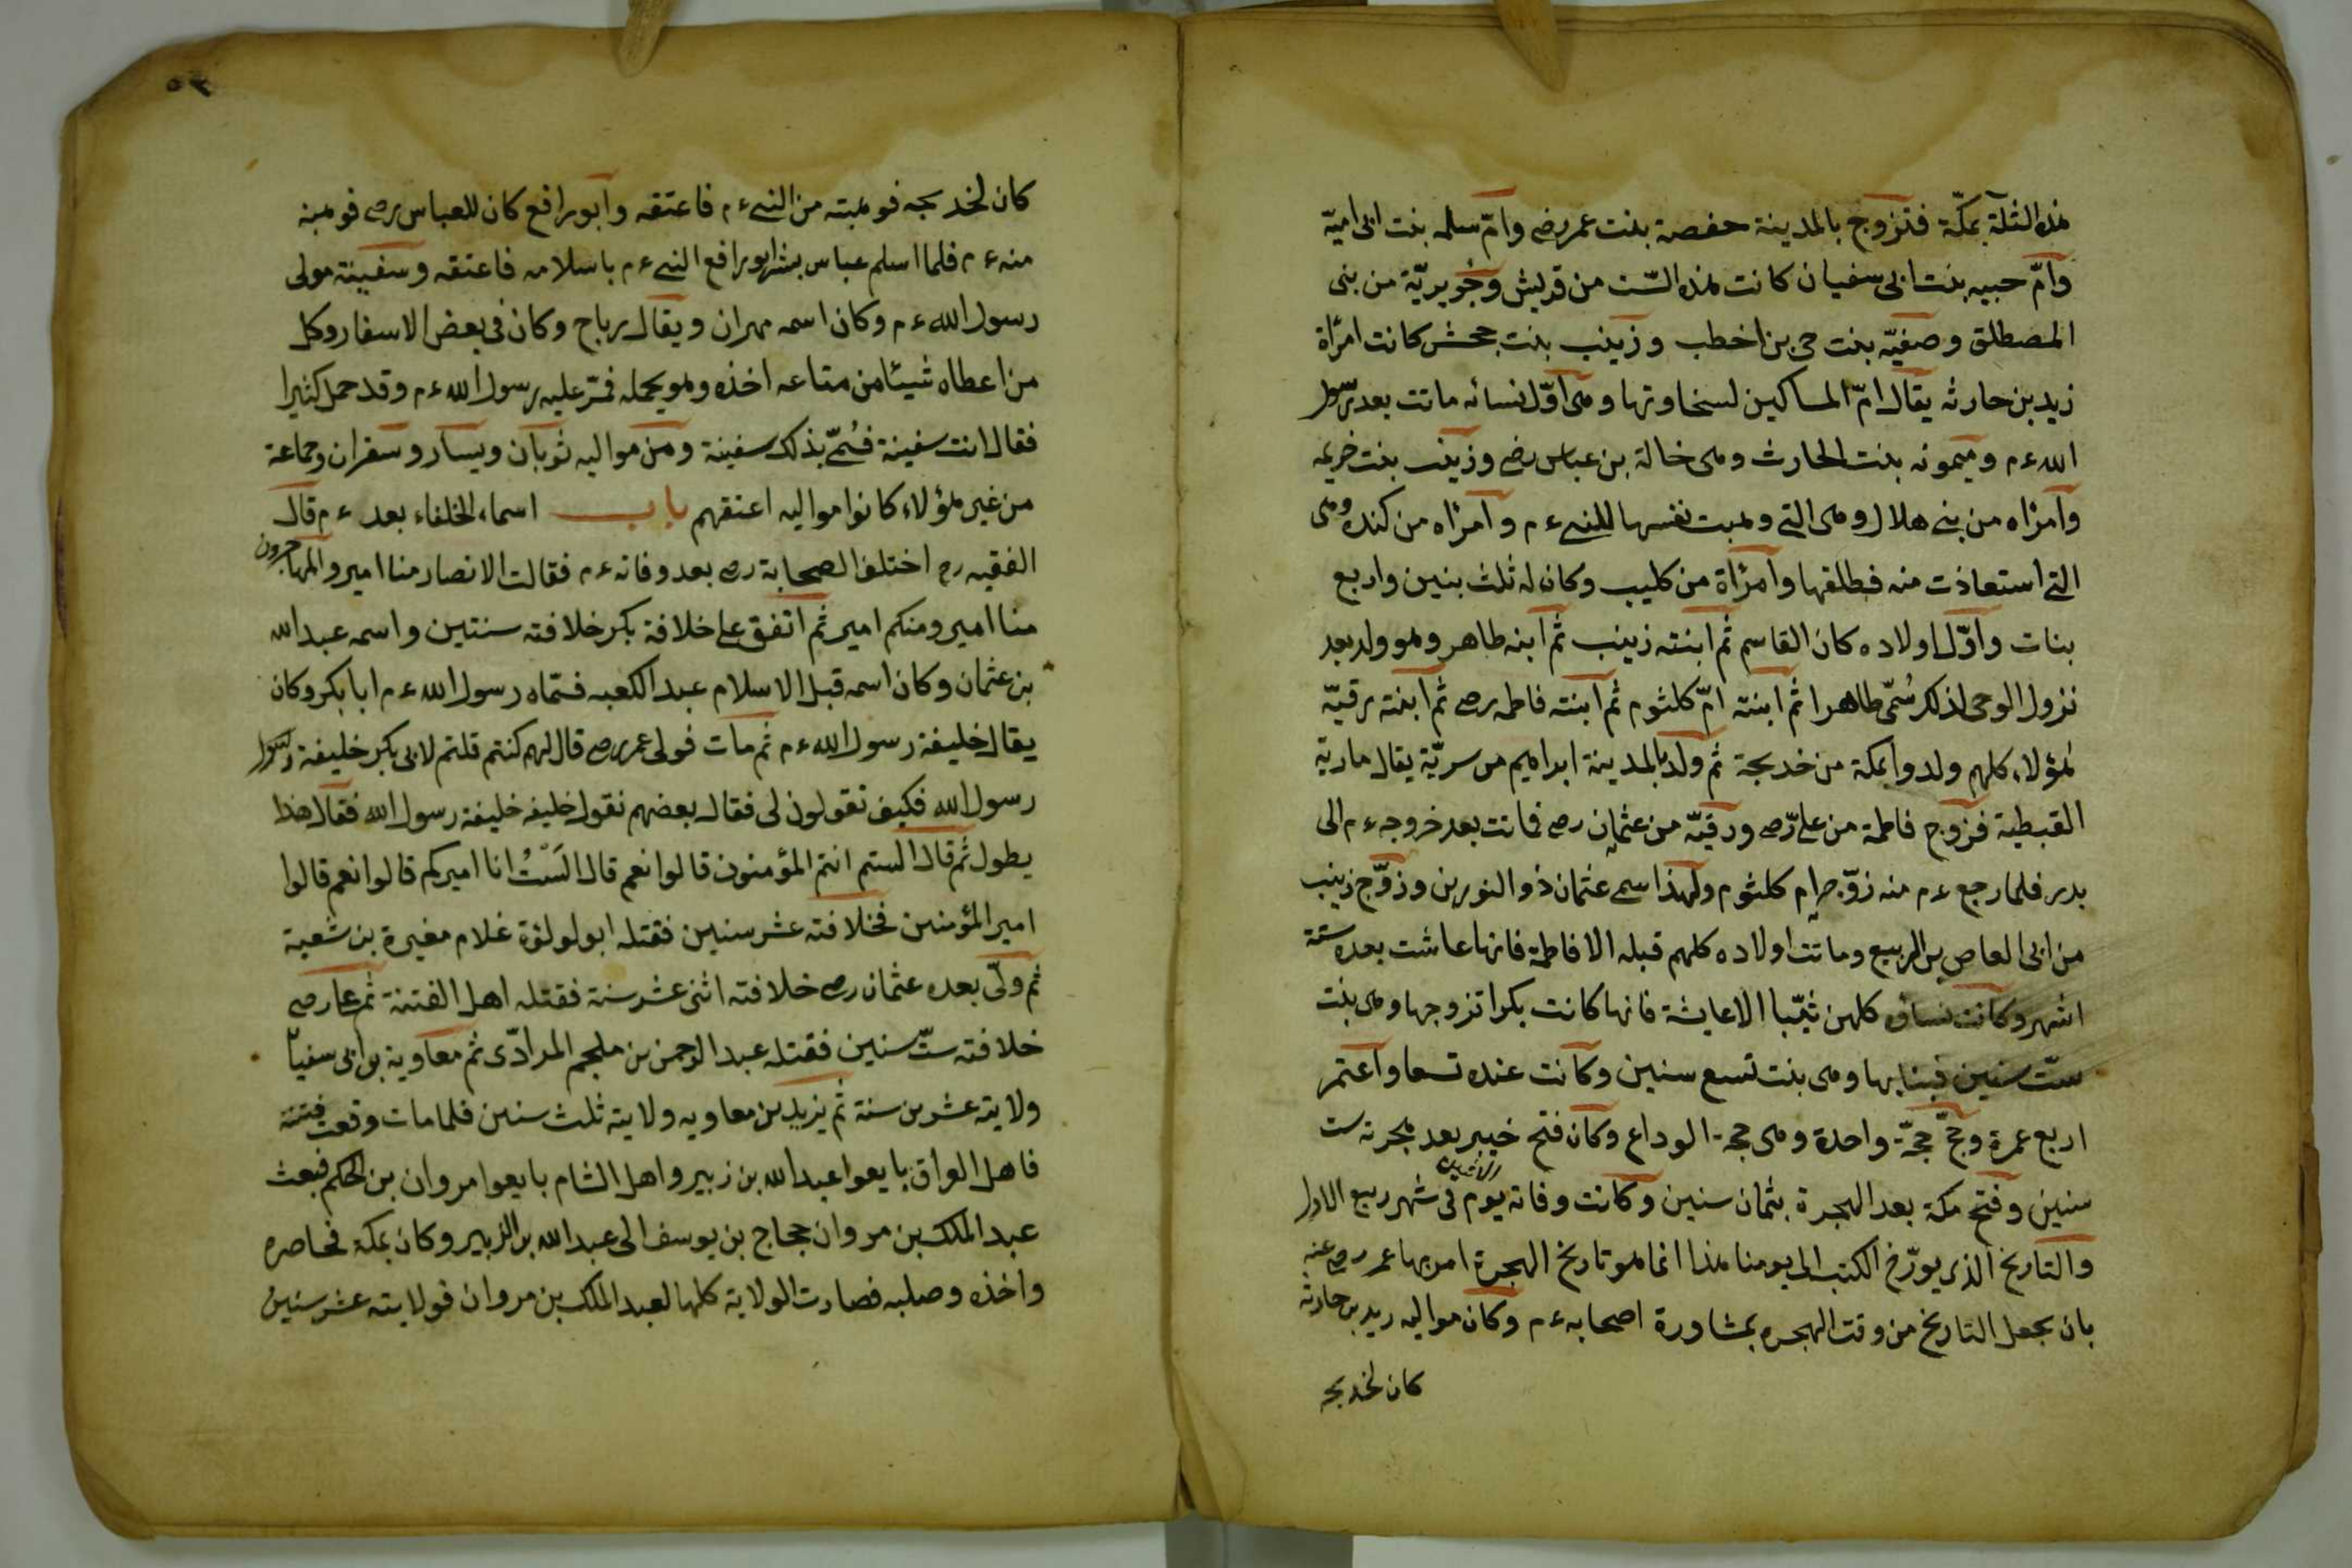 هذه الثلثة بمكّة فتزوج بالمدينة حفصة بنت عمر رضى وامّ سلمه بنت ابى اميّة
وامّ حبيبه بنت ابى سفيان كانت هذه الستّ من قريش وجويريّة من بنى
المصطلق وصفيّه بنت حى بن اخطب وزينب بنت جحش كانت امرأة
زيد بن حارثه يقال امّ المساكين لسخاوتها وهى اوّل نسائه ماتت بعد رسول
الله ءم وميمونه بنت الحارث وهى خالة بن عباس رضى وزينب بنت خزيمه
وامرأه من بنى هلال وهى التى وهبت نفسها للنبى ءم وامرأه من كنده وهى
التى استعاذت منه فطلقها وامرأة من كليب وكان له ثلث بنين واربع
بنات واوّل اولاده كان القاسم ثم ابنته زينب ثم ابنه طاهر وهو ولد بعد
نزول الوحى لذلك سُمّى طاهرا ثم ابنته امّ كلثوم ثم ابنته فاطمه رضى ثم ابنته رقيّة
هؤلاء كلهم ولدوا بمكة من خديجة ثم ولد بالمدينة ابراهيم من سريّة يقال مارية
القبطية فزوج فاطمة من على رضى ورقيّه من عثمان رضى فماتت بعد خروجه ءم الى
بدر فلما رجع ءم منه زوّجه ام كلثوم ولهذا سمى عثمان ذو النورين وزوّج زينب
من ابى العاص بن الربيع وماتت اولاده كلهم قبله الا فاطمة فانها عاشت بعده ستة
اشهر وكانت نساؤه كلهن ثيّبا الا عايشة فانها كانت بكرا تزوجها وهى بنت
ستّ سنين فبنا بها وهى بنت تسع سنين وكانت عنده تسعا واعتمر
اربع عمرة وحجّ حجّة واحدة وهى حجة الوداع وكان فتح خيبر بعد هجرته ست
سنين وفتح مكة بعد الهجرة بثمان سنين وكانت وفاته يوم الاثنين فى شهر ربيع الاول
والتاريخ الذى يورّخ الكتب الى يومنا هذا انما هو تاريخ الهجرة امر بها عمر رضى عنه
بان يجعل التاريخ من وقت الهجره بمشاورة اصحابه ءم وكان مواليه زيد بن حارثه
كان لخديجه
٥٣
كان لخديجه فوهبته من النبى ءم فاعتقه وابو رافع كان للعباس رضى فوهبه
منه ءم فلما اسلم عباس بشر ابو رافع النبى ءم باسلامه فاعتقه وسفينة مولى
رسول الله ءم وكان اسمه مهران ويقال رباح وكان فى بعض الاسفار وكل
من اعطاه شيئا من متاعه اخذه وهو يحمله فمرّ عليه رسول الله ءم وقد حمل كثيرا
فقال انت سفينة فسُمّى بذلك سفينة ومن مواليه ثوبان ويسار وسقران وجماعة
من غير هؤلاء كانوا مواليه اعتقهم باب اسماء الخلفاء بعده ءم قال
الفقيه رح اختلف الصحابة رضى بعد وفاته ءم فقالت الانصار منا امير والمهاجرون
منا امير ومنكم امير ثم اتفق على خلافة بكر خلافته سنتين واسمه عبد الله
بن عثمان وكان اسمه قبل الاسلام عبد الكعبه فسمّاه رسول الله ءم ابا بكر وكان
يقال خليفة رسول الله ءم ثم مات فولى عمر رضى قال لهم كنتم قلتم لابى بكر خليفة رسول
رسول الله فكيف تقولون لى فقال بعضهم نقول خليفه خليفة رسول الله فقال هذا
يطول ثم قال الستم انتم المؤمنون قالوا نعم قال الَسْتُ انا اميركم قالوا نعم قالوا
امير المؤمنين فخلافته عشر سنين فقتله ابو لولؤة غلام مغيرة بن شعبة
ثم ولّى بعده عثمان رضى خلافته اثنى عشر سنة فقتله اهل الفتنة ثم على رضى
خلافته ستّ سنين فقتله عبد الرحمن بن ملجم المرادّى ثم معاوية بن ابى سفيان
ولايته عشرين سنة ثم يزيد بن معاويه ولايته ثلث سنين فلما مات وقعت فتنة
فاهل العراق بايعوا عبد الله بن زبير واهل الشام بايعوا مروان بن الحكم فبعث
عبد الملك بن مروان حجاج بن يوسف الى عبد الله بن الزبير وكان بمكة فحاصره
واخذه وصلبه فصارت الولاية كلها لعبد الملك بن مروان فولايته عشر سنين